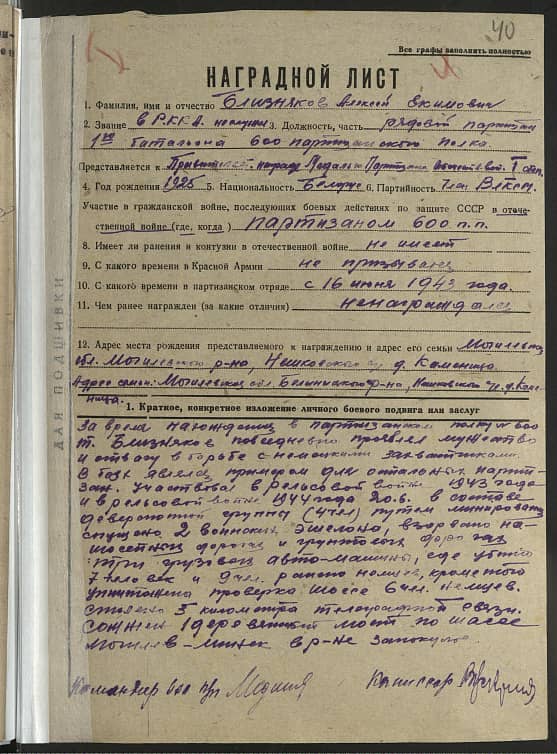 40
Все графы заполнять полностью
НАГРАДНОЙ ЛИСТ
1. Фамилия, имя и отчество Близняков Алексей Екимович
2. Звание в Р.К.К.А. не служил 3. Должность, часть рядовой партизан
1го батальона 600 партизанского полка.
Представляется к награде Медалью Партизана Отечествен. I степ.
4. Год рождения 1925 5. Национальность Белорус 6. Партийность Член ВЛКСМ.
Участие в гражданской войне, последующих боевых действиях по защите СССР в отече-
ственной войне (где, когда) партизаном 600 п.п.
8. Имеет ли ранения и контузии в отечественной войне не имеет
9. С какого времени в Красной Армии не призывался
10. С какого времени в партизанском отряде с 16 июня 1943 года.
11. Чем ранее награжден (за какие отличия) ненаграждался
12. Адрес места рождения представляемого к награждению и адрес его семьи Могилевская
обл. Могилевского р-на, д. Каменица.
Адрес семьи: Могилевская обл. р-на, д. Каме-
ница.
ДЛЯ ПОДШИВКИ
1. Краткое, конкретное изложение личного боевого подвига или заслуг
За время нахождения в партизанском полку 600
т. Близняков повседневно проявлял мужество
и отвагу в борьбе с немецкими захватчиками.
В боях являлся примером для остальных парти-
зан. Участвовал в рельсовой войне 1943 года
и в рельсовой войне 1944 года 20.6. в составе
диверсионной группы (4 чел) путем минирования
спущено 2 воинских эшелона, взорвано на
шоссейных дорогах и грунтовых дорогах
три грузовых авто-машины, где убито
7 человек и 9 чел. ранено немцев, кроме того
уничтожена проверка шоссе 6 чел. немцев.
спилено 5 километра телеграфной связи.
Сожжен 1 деревянный мост по шоссе
Могилев-Минск в р-не
Командир 600 п/п Комиссар